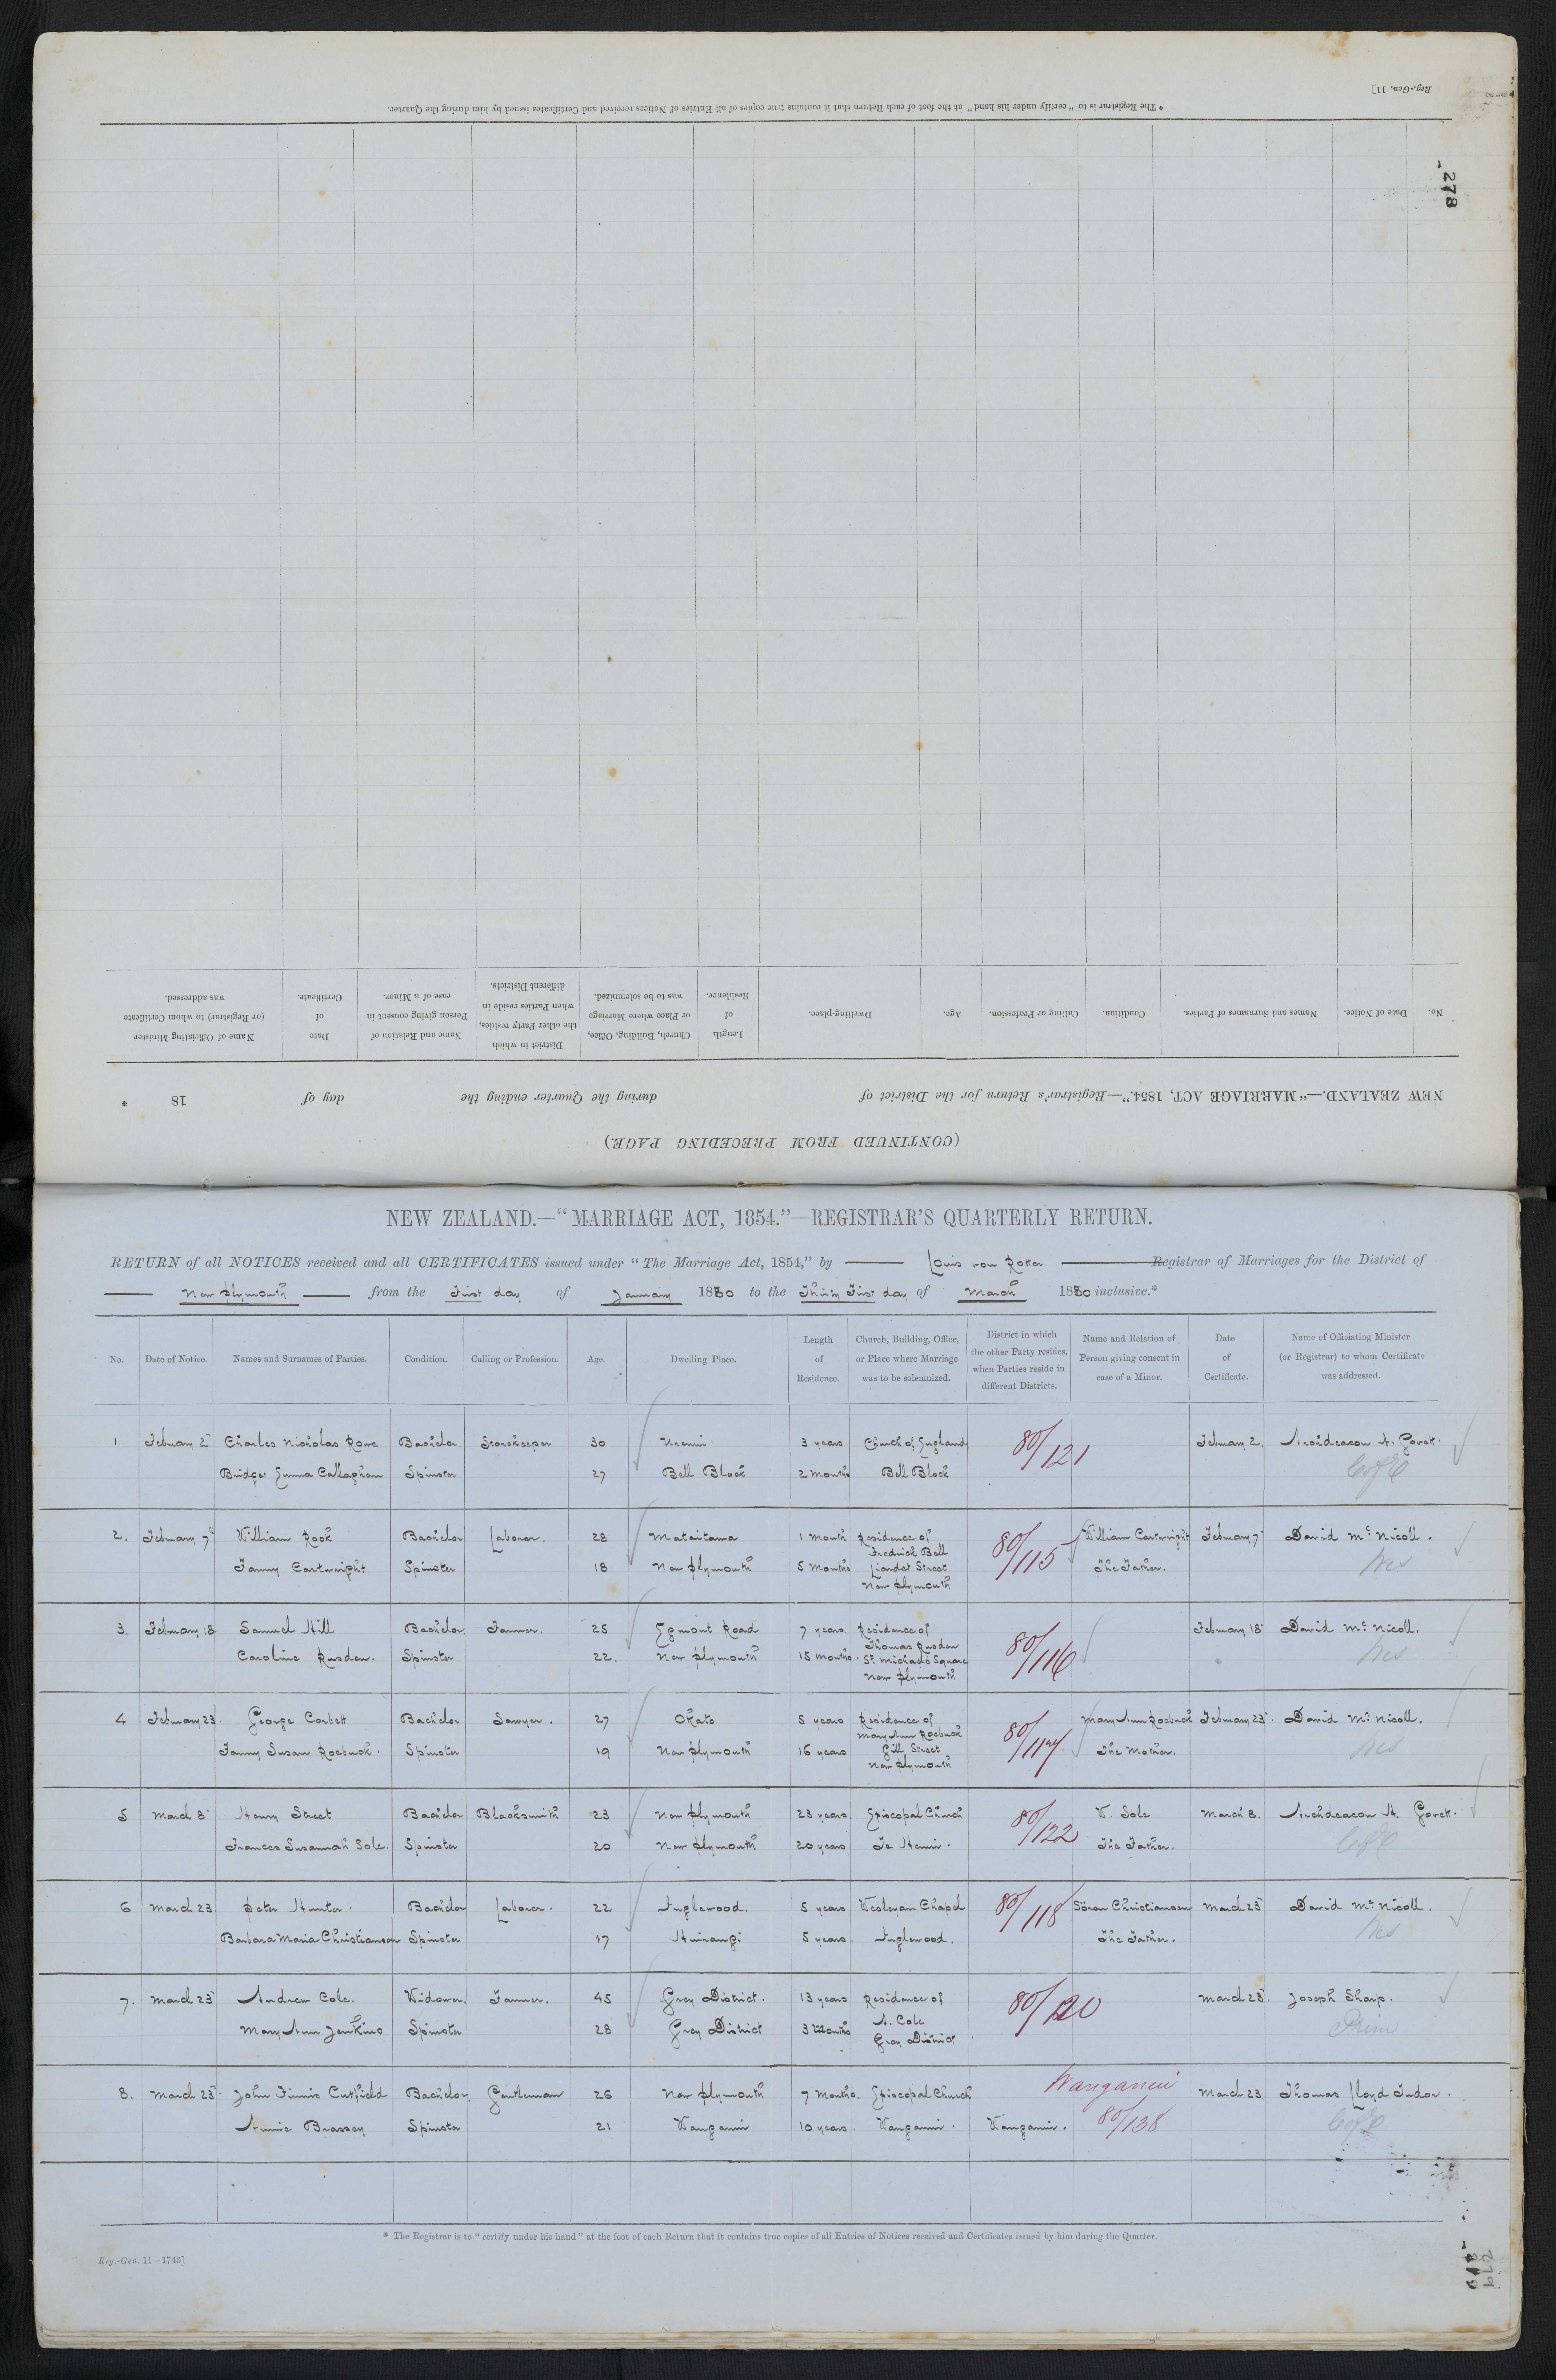 * The Registrar is to "certify under his hand" at the foot of each Return that it contains true copies of all Entries of Notices received and Certificates issued by him during the Quarter.
Reg.-Gen. 11]
278
(CONTINUED FROM PRECEDING PAGE.)
NEW ZEALAND.—"MARRIAGE ACT, 1854."—Registrar's Return for the District of during the Quarter ending the day of 18 *
No. Date of Notice. Names and Surnames of Parties. Condition. Calling or Profession. Age. Dwelling-place. Length of Residence. Church, Building, Office, or Place where Marriage was to be solemnized. District in which the other Party resides, when Parties reside in different Districts. Name and Relation of Person giving consent in case of a Minor. Date of Certificate. Name of Officiating Minister (or Registrar) to whom Certificate was addressed.
NEW ZEALAND.—"MARRIAGE ACT, 1854."—REGISTRAR'S QUARTERLY RETURN.
RETURN of all NOTICES received and all CERTIFICATES issued under "The Marriage Act, 1854," by Louis von Rotter Registrar of Marriages for the District of
New Plymouth from the First day of January 1880 to the Thirty First day of March 1880 inclusive.*
No. Date of Notice. Names and Surnames of Parties. Condition. Calling or Profession. Age. Dwelling Place. Length of Residence. Church, Building, Office, or Place where Marriage was to be solemnized. District in which the other Party resides, when Parties reside in different Districts. Name and Relation of Person giving consent in case of a Minor. Date of Certificate. Name of Officiating Minister (or Registrar) to whom Certificate was addressed.
1. February 2 Charles Nicholas Rowe Bachelor Storekeeper 30 Urenui 3 years Church of England 80/121 February 2. Archdeacon H. Govett.
Bridget Emma Callaghan Spinster 27 Bell Block 2 months Bell Block C of E
2. February 7th William Rook Bachelor Laborer. 28 Mataitawa 1 month Residence of 80/115 William Cartwright February 7 David Mc Nicoll.
Fredrick Bell
Fanny Cartwright Spinster 18 New Plymouth 5 months Liardet Street The Father. Wes
New Plymouth
3. February 18 Samuel Hill Bachelor Farmer. 25 Egmont Road 7 years. Residence of 80/116 February 18 David Mc Nicoll.
Thomas Rusden
Caroline Rusden. Spinster 22. New Plymouth 15 months. St. Michaels Square Wes
New Plymouth
4 February 23. George Corbett Bachelor Sawyer. 27 Okato 5 years Residence of 80/117 Mary Ann Roebuck February 23. David Mc Nicoll.
Mary Ann Roebuck
Fanny Susan Roebuck. Spinster 19 New Plymouth 16 years Gill Street The Mother. Wes
New Plymouth
5 March 8 Henry Street Bachelor Blacksmith 23 New Plymouth 23 years Episcopal Church 80/122 W. Sole March 8. Archdeacon H. Govett.
Frances Susannah Sole. Spinster 20 New Plymouth 20 years Te Henui. The Father. C of E
6 March 23 Peter Hunter. Bachelor Laborer. 22 Inglewood. 5 years Wesleyan Chapel 80/118 Sören Christiansen March 23 David Mc Nicoll.
Barbara Maria Christiansen Spinster 17 Huirangi 5 years. Inglewood. The Father. Wes
7. March 23 Andrew Cole. Widower. Farmer. 45 Grey District. 13 years Residence of 80/120 March 23. Joseph Sharp.
Mary Ann Jenkins Spinster 28 Grey District 3 months A. Cole Prim
Grey District
8. March 23. John Finnis Cutfield Bachelor Gentleman 26 New Plymouth 7 months. Episcopal Church Wanganui March 23. Thomas Lloyd Tudor.
Annie Brassey Spinster 21 Wanganui 10 years. Wanganui. Wanganui. 80/138 C of E
* The Registrar is to "certify under his hand" at the foot of each Return that it contains true copies of all Entries of Notices received and Certificates issued by him during the Quarter.
Reg.-Gen. 11—1743]